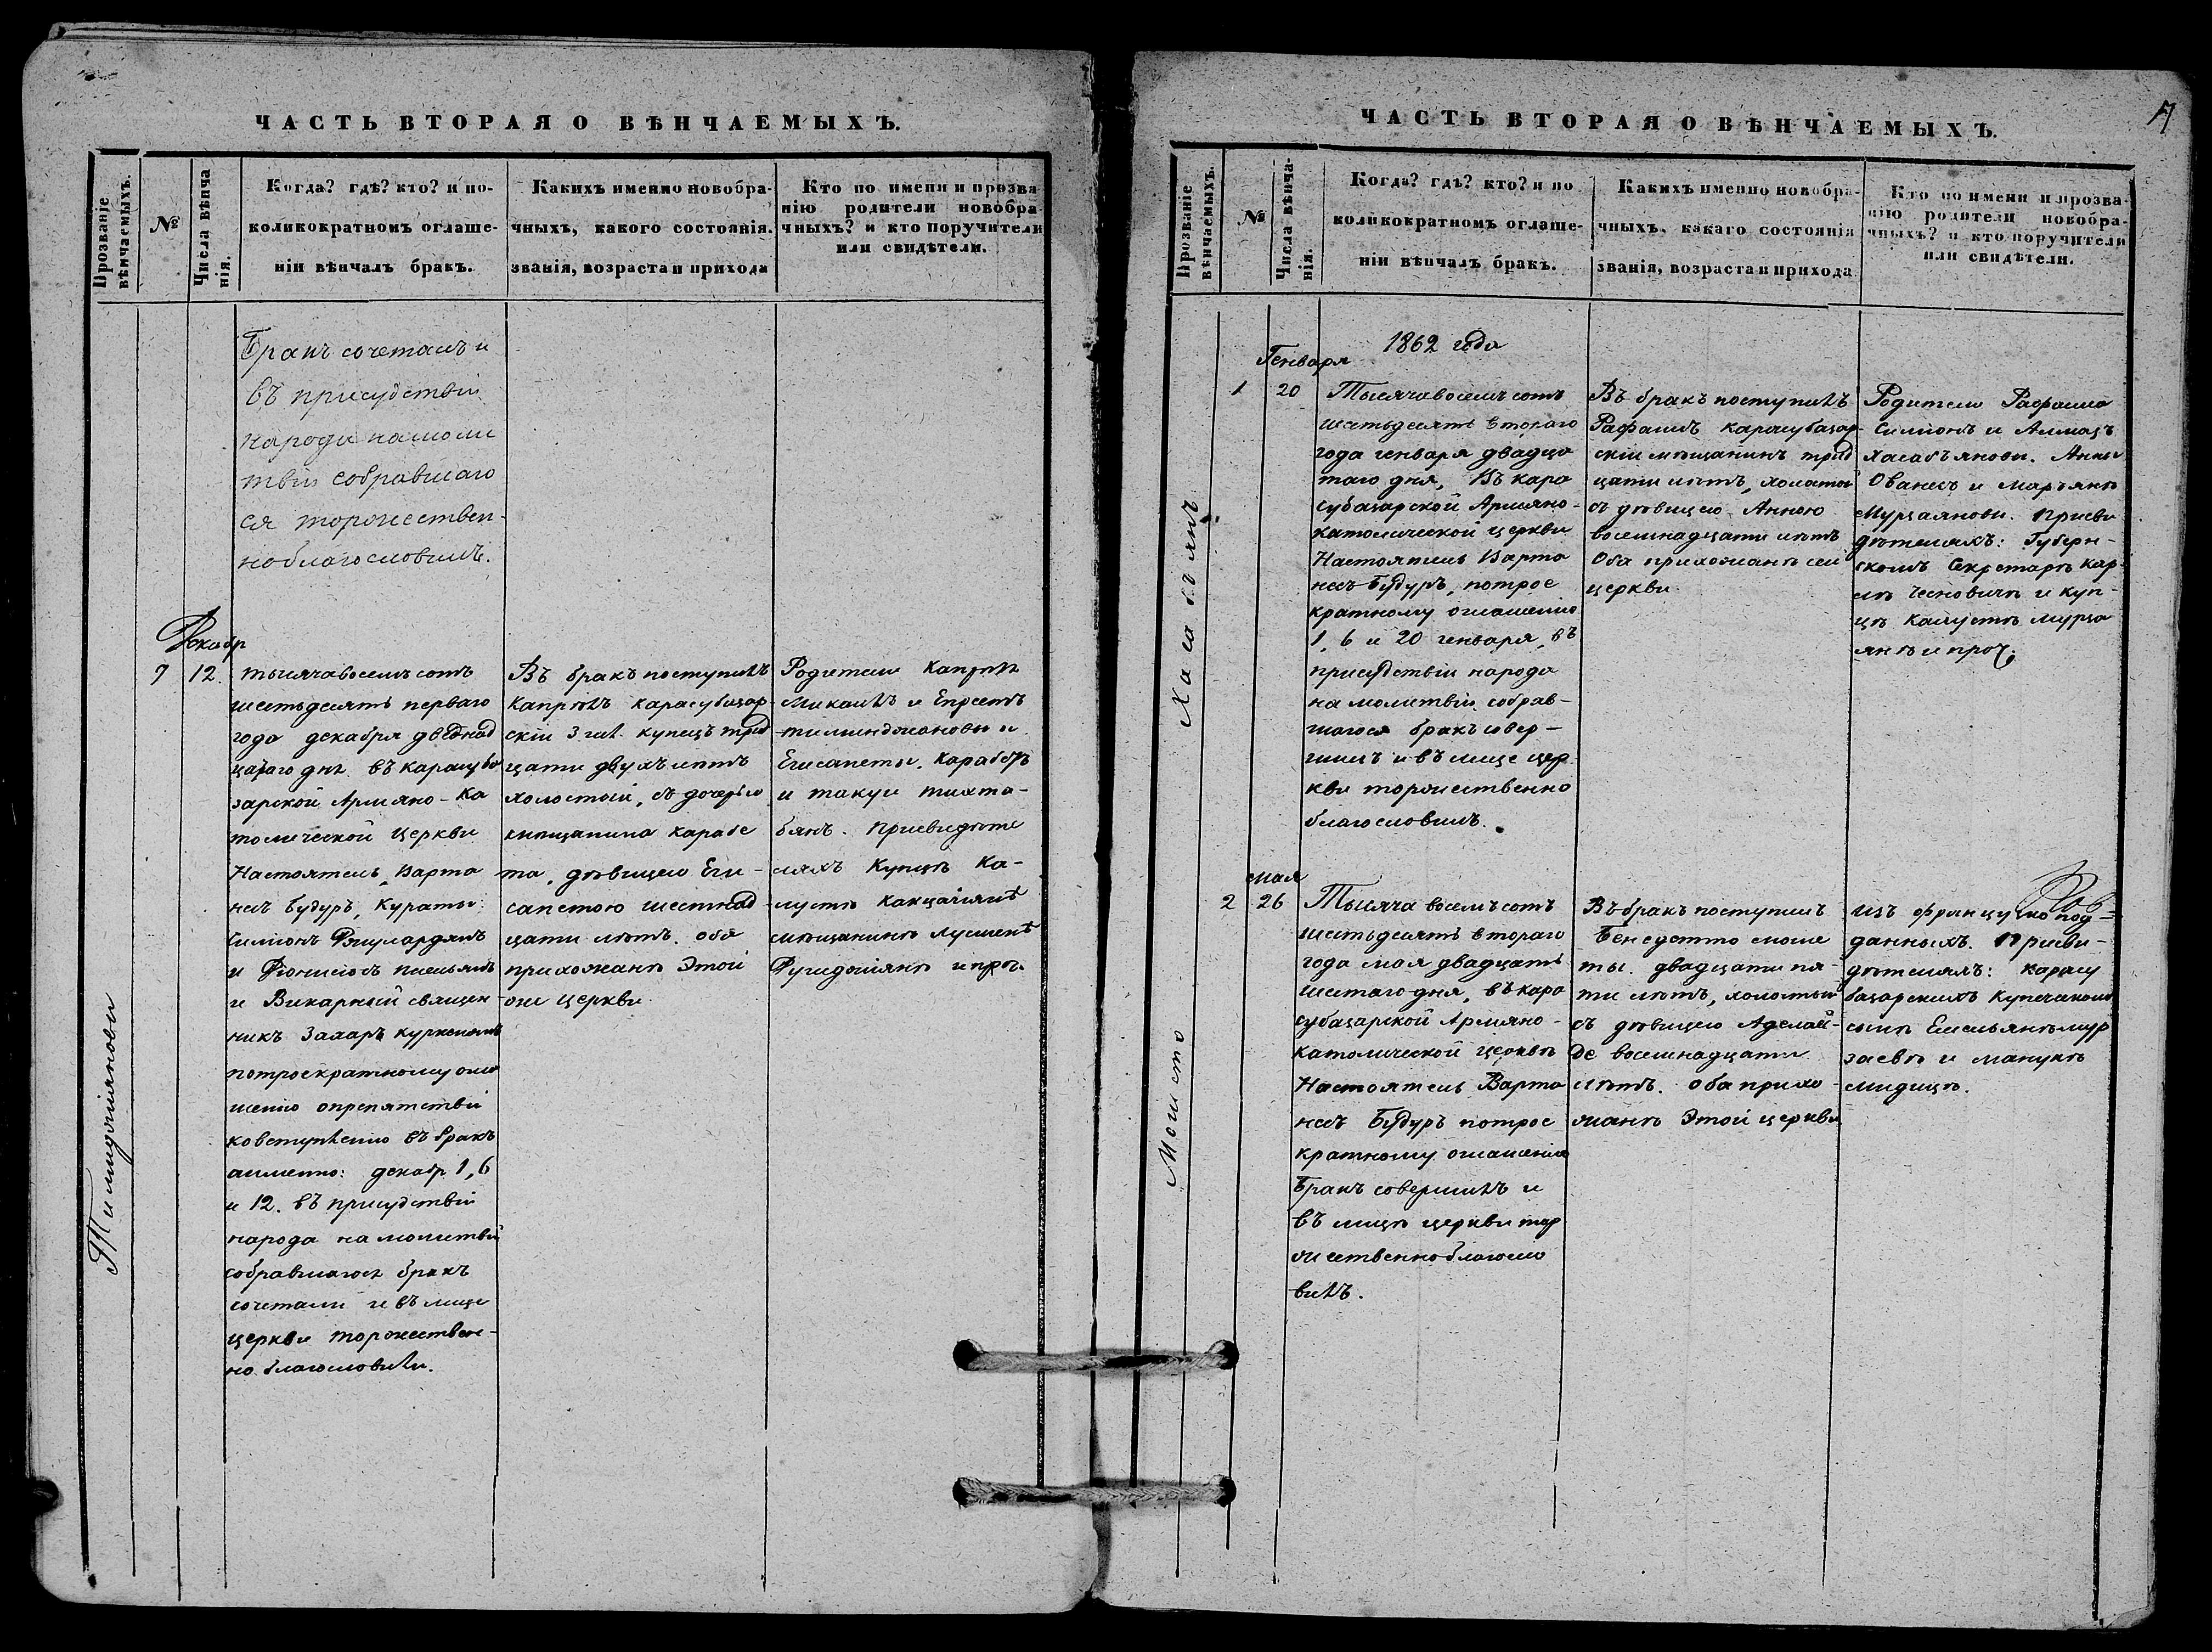 ЧАСТЬ ВТОРАЯ О ВѢНЧАЕМЫХЪ.
Прозваніе вѣнчаемыхъ.
№
Числа вѣнча
нія.
Когда? гдѣ? кто? и по-
коликократномъ оглаше-
ніи вѣнчалъ бракъ.
Какихъ именно новобра-
чныхъ, какого состоянія.
званія, возраста и прихода
Кто по имени и прозва
нію родители новобра
чныхъ? и кто поручители
или свидѣтели.
Бракъ сочеталъ и
въ присудствіи
народа на моли
твіи собравшаго
ся торжествен-
но благословилъ.
Тилинджіяновы
Декабр
7
12.
тысяча восемъ сотъ
шестьдесятъ перваго
года декабря двенад
цатаго дня въ карасуба
зарской Армяно-Ка
толической Церкви
Настоятель Варта
несъ Будуръ, Кураты:
Симіонъ
и Діонисіосъ
и Викарный священ
никъ Захаръ
потроекратному огла
шенію опрепятствіи
ковступленію въ бракъ
аименно: декабр 1, 6
и 12. въ присудствіи
народа на молитвіи
собравшагося бракъ
сочетали и въ лице
церкви торжествен-
но благословили.
Въ бракъ поступилъ
Капріелъ карасубазар-
скіи 3 гил. купецъ трид
цати двухъ лѣтъ
холостой, съ дочерью
мѣщанина карабе
та, дѣвицею Еги-
сапетою шестнад
цати лѣтъ. оба
прихожанѣ этой
же церкви.
Родители Капріелѣ
Микаилъ и Епрсетъ
тилинджановы и
Егисапеты. Карабетъ
и такуи тихта-
бянъ. Присвидѣте
ляхъ Купцѣ Ка-
лустѣ Какцагіянѣ
мѣщанинѣ Лусиенѣ
Фугиджіянѣ и проч.
ЧАСТЬ ВТОРАЯ О ВѢНЧАЕМЫХЪ.
Прозваніе вѣнчаемыхъ.
№
Числа вѣнча-
нія.
Когда? гдѣ? кто? и по
коликократномъ оглаше-
ніи вѣнчалъ бракъ.
Какихъ именно новобра-
чныхъ, какаго состоянія
званія, возраста и прихода
Кто по имени и прозва-
нію родители новобра-
чныхъ? и кто поручители
или свидѣтели.
Хасабъянъ
1862 года
Генваря
1
20
Тысяча восемъ сотъ
шестьдесятъ втораго
года генваря двадца
таго дня, Въ кара
субазарской Армяно-
католической церкви
Настоятель Варта
несъ Будуръ, потрое
кратному оглашенію
1, 6 и 20 генваря, въ
присудствіи народа
на молитвіи собрав-
шагося бракъ совер-
шилъ и въ лице цер
кви торжественно
благословилъ.
Въ бракъ поступилъ
Рафаилъ карасубазар-
скіи мѣщанинъ трид
цати лѣтъ, холостой
съ дѣвицею Анною
восемнадцати лѣтъ
Оба прихожанѣ сей
церкви.
Родители Рафаила
Симіонъ и Алмазъ
Хасабъяновы. Анны
Ованесъ и Маръянѣ
Мурзаяновы. Присви
дѣтеляхъ: Губерн-
скомъ Секретарѣ Кар
лѣ Чесновичѣ и куп-
цѣ Калустѣ Мурза
янѣ и проч.
Моисто
мая
2
26
Тысяча восемъ сотъ
шестьдесятъ втораго
года мая двадцать
шестаго дня, въ кара
субазарской Армяно-
католической церквѣ
Настоятель Варта
несъ Будуръ потрое
кратному оглашенію
бракъ совершилъ и
въ лицѣ церкви тор
жественно благосло
вилъ.
Въ бракъ поступилъ
Бенедетто
двадцати пя-
ти лѣтъ, холостый
съ дѣвицею Аделаи-
де восемнадцати
лѣтъ. оба прихо-
жанѣ этой церкви
изъ французско под-
данныхъ. Присви-
дѣтеляхъ: карасу
базарскихъ купеческомъ
сынѣ Емельянѣ мур
заевѣ и манукѣ
мидицѣ.